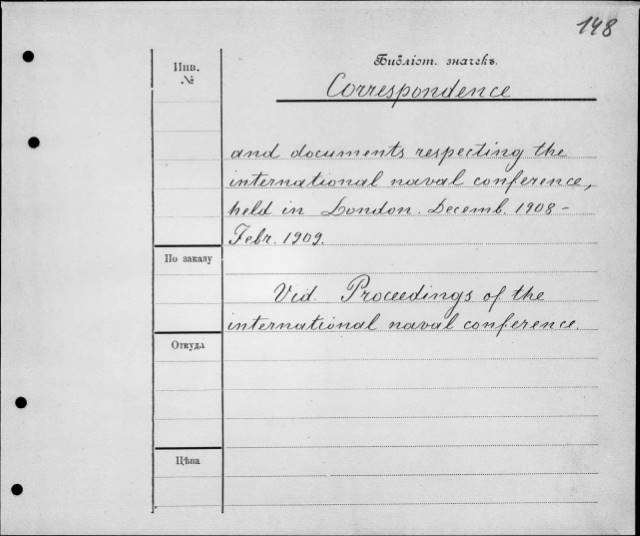 148
Библіот. значекъ.
Correspondence
Инв.
№
and documents respecting the
international naval conference,
held in London. Decemb. 1908 –
Febr. 1909.
По заказу
Vid. Proceedings of the
international naval conference.
Откуда
Цѣна